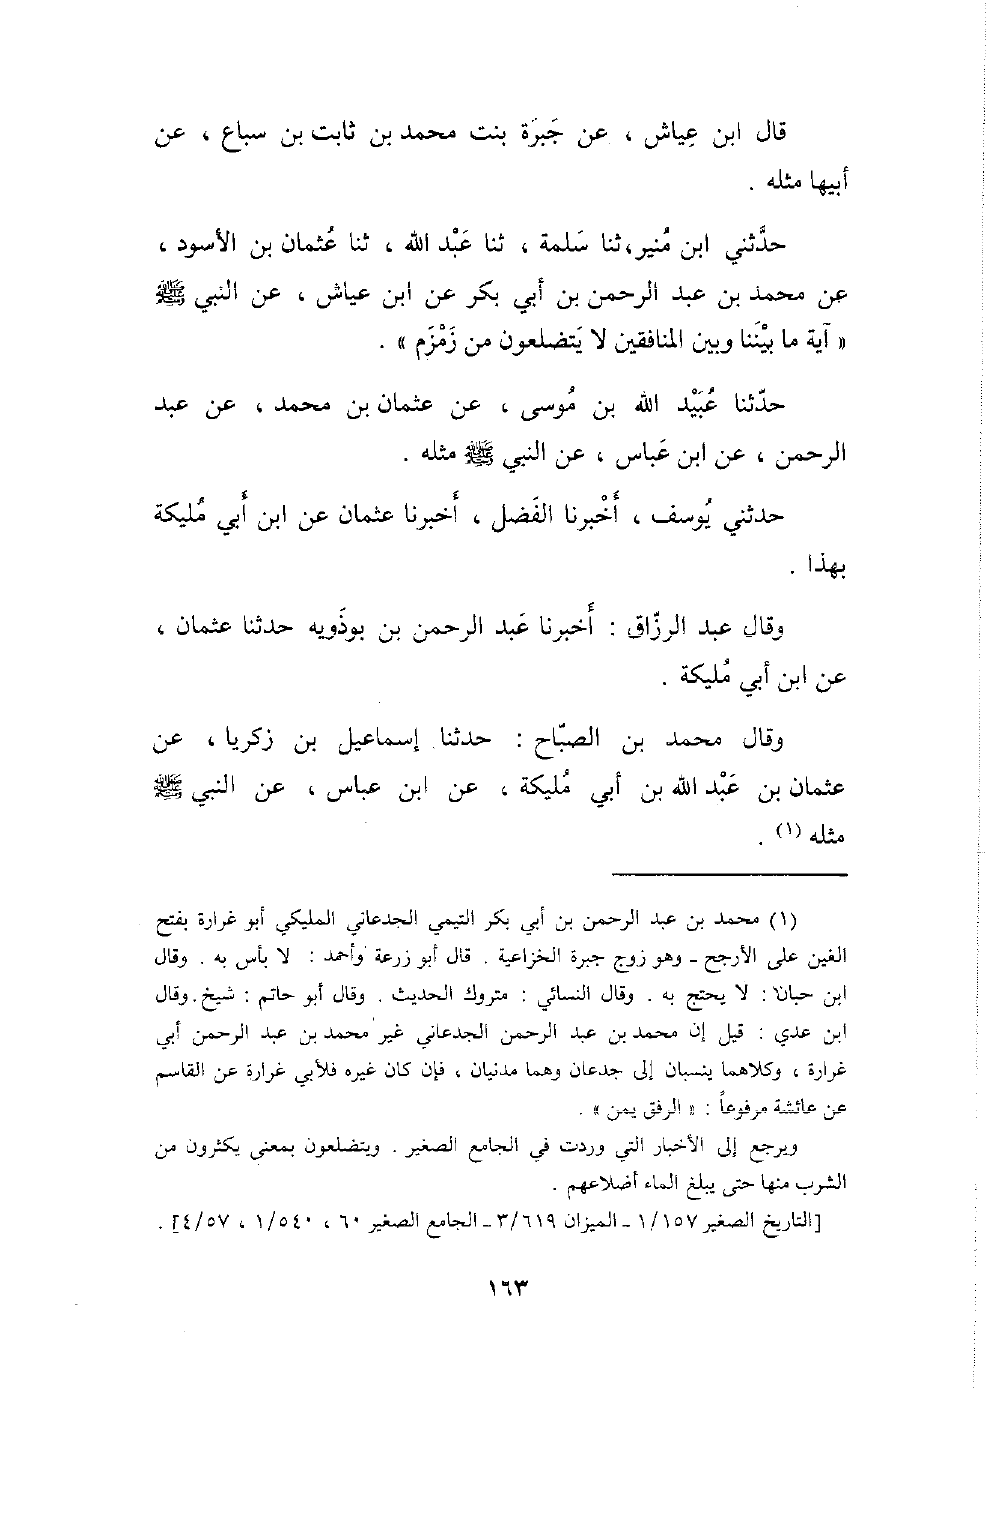 قال ابن عِياش ، عن جَبرَة بنت محمد بن ثابت بن سباع ، عن
أبيها مثله .
حدَّثني ابن مُنير،ثنا سَلمة ، ثنا عَبْد الله ، ثنا عُثمان بن الأسود ،
عن محمد بن عبد الرحمن بن أبي بكر عن ابن عياش ، عن النبي ﷺ
« آية ما بيْنَنا وبين المنافقين لا يَتضلعون من زَمْزَم » .
حدّثنا عُبَيْد الله بن مُوسى ، عن عثمان بن محمد ، عن عبد
الرحمن ، عن ابن عَباس ، عن النبي ﷺ مثله .
حدثني يُوسف ، أَخْبرنا الفَضل ، أَخبرنا عثمان عن ابن أَبي مُليكة
بهذا .
وقال عبد الرزّاق : أَخبرنا عَبد الرحمن بن بوذَويه حدثنا عثمان ،
عن ابن أبي مُليكة .
وقال محمد بن الصبّاح : حدثنا إسماعيل بن زكريا ، عن
عثمان بن عَبْد الله بن أبي مُليكة ، عن ابن عباس ، عن النبي ﷺ
مثله (١) .
(١) محمد بن عبد الرحمن بن أبي بكر التيمي الجدعاني المليكي أبو غرارة بفتح
الغين على الأرجح ـ وهو زوج جبرة الخزاعية . قال أبو زرعة وأحمد : لا بأس به . وقال
ابن حبان : لا يحتج به . وقال النسائي : متروك الحديث . وقال أبو حاتم : شيخ . وقال
ابن عدي : قيل إن محمد بن عبد الرحمن الجدعاني غير محمد بن عبد الرحمن أبي
غرارة ، وكلاهما ينسبان إلى جدعان وهما مدنيان ، فإن كان غيره فلأبي غرارة عن القاسم
عن عائشة مرفوعاً : « الرفق يمن » .
ويرجع إلى الأخبار التي وردت في الجامع الصغير . ويتضلعون بمعنى يكثرون من
الشرب منها حتى يبلغ الماء أضلاعهم .
[التاريخ الصغير ١/١٥٧ ـ الميزان ٣/٦١٩ ـ الجامع الصغير ٦٠ ، ١/٥٤٠ ، ٤/٥٧] .
١٦٣